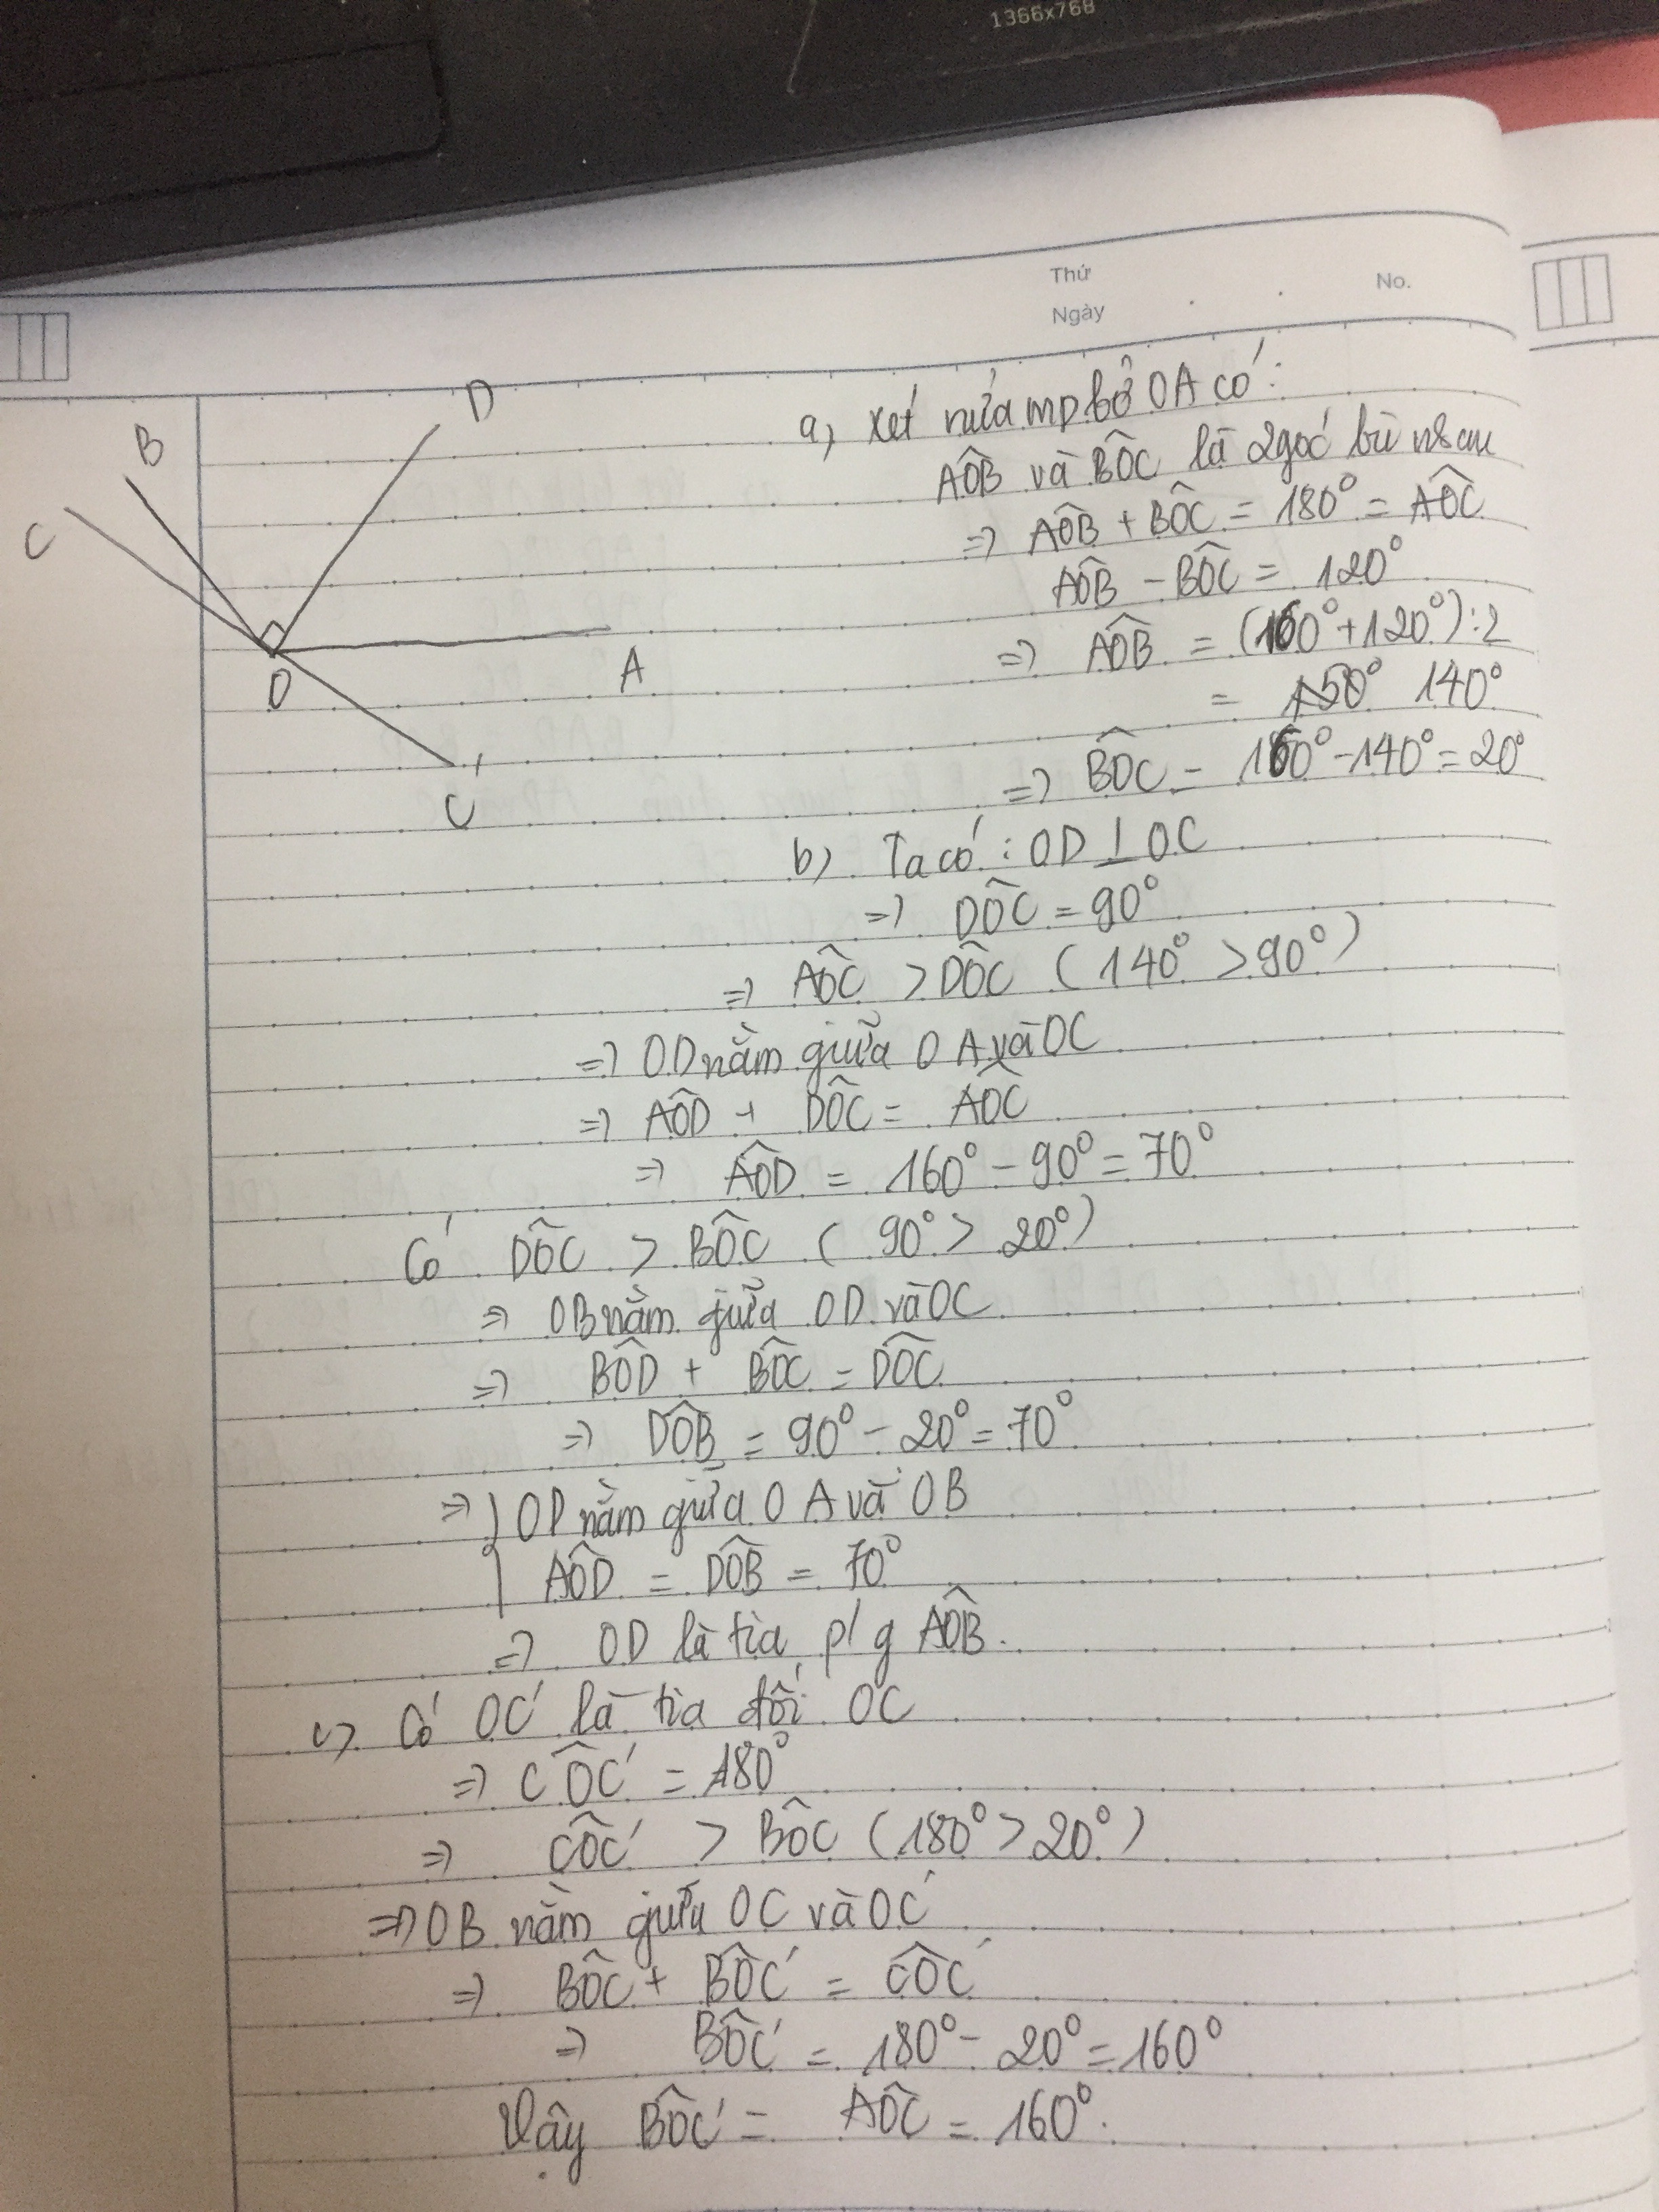 1366x768
Thứ
Ngày
No.
B
D
C
O
A
C'
a) Xét nửa mp bờ OA có:
AÔB và BÔC là 2 góc bù nhau
=> AÔB + BÔC = 180° = AÔC
AÔB - BÔC = 120°
=> AÔB = (160° + 120°) : 2
= 140°
=> BÔC = 160° - 140° = 20°
b) Ta có : OD ⊥ OC
=> DÔC = 90°
=> AÔC > DÔC ( 140° > 90° )
=> OD nằm giữa OA và OC
=> AÔD + DÔC = AÔC
=> AÔD = 160° - 90° = 70°
Có DÔC > BÔC ( 90° > 20° )
=> OB nằm giữa OD và OC
=> BÔD + BÔC = DÔC
=> DÔB = 90° - 20° = 70°
=> { OD nằm giữa OA và OB
AÔD = DÔB = 70°
=> OD là tia p/g AÔB.
c) Có OC' là tia đối OC
=> CÔC' = 180°
=> CÔC' > BÔC ( 180° > 20° )
=> OB nằm giữa OC và OC'
=> BÔC + BÔC' = CÔC'
=> BÔC' = 180° - 20° = 160°
Vậy BÔC' = AÔC = 160°.